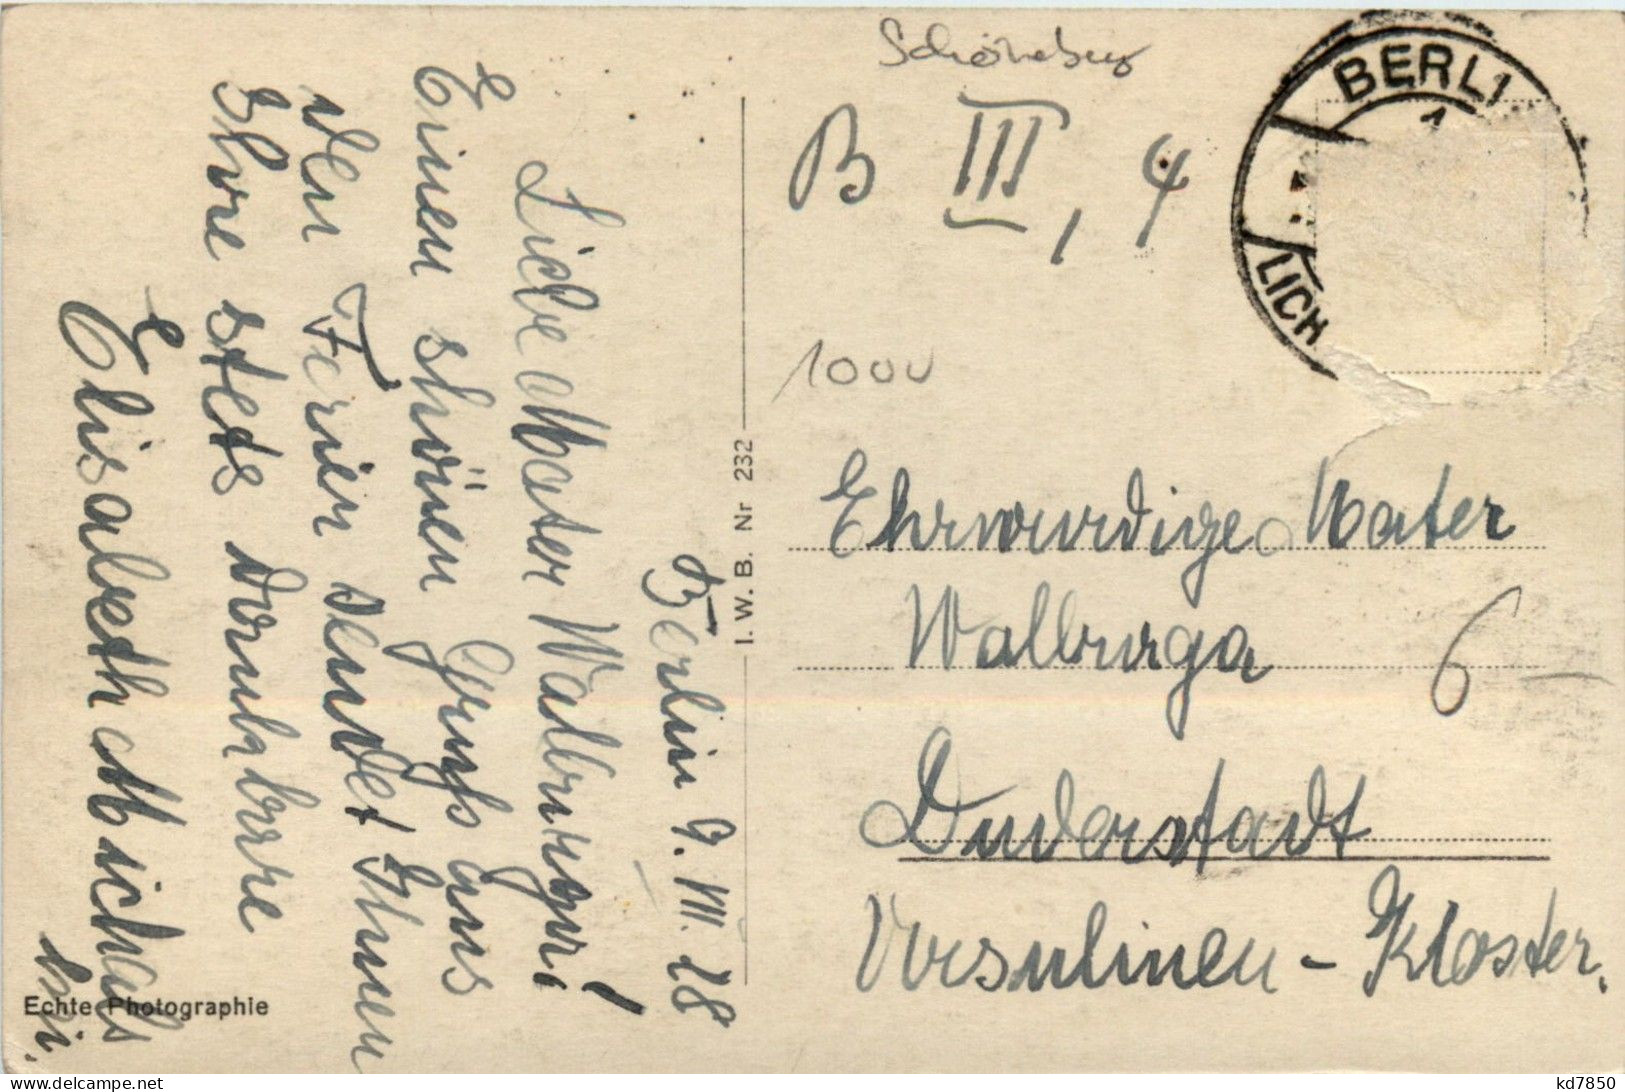 Schöneberg
B III, 4
BERLI
1
LICH
1000
Berlin 9. VIII. 28
Liebe Mater Walburga!
Einen schönen Gruß aus
den Ferien sendet Ihnen
Ihre stets dankbare
Elisabeth Michals
I. W. B. Nr 232
Ehrwürdige Mater
Walburga
6
Duderstadt
Ursulinen-Kloster.
Echte Photographie
kd7850